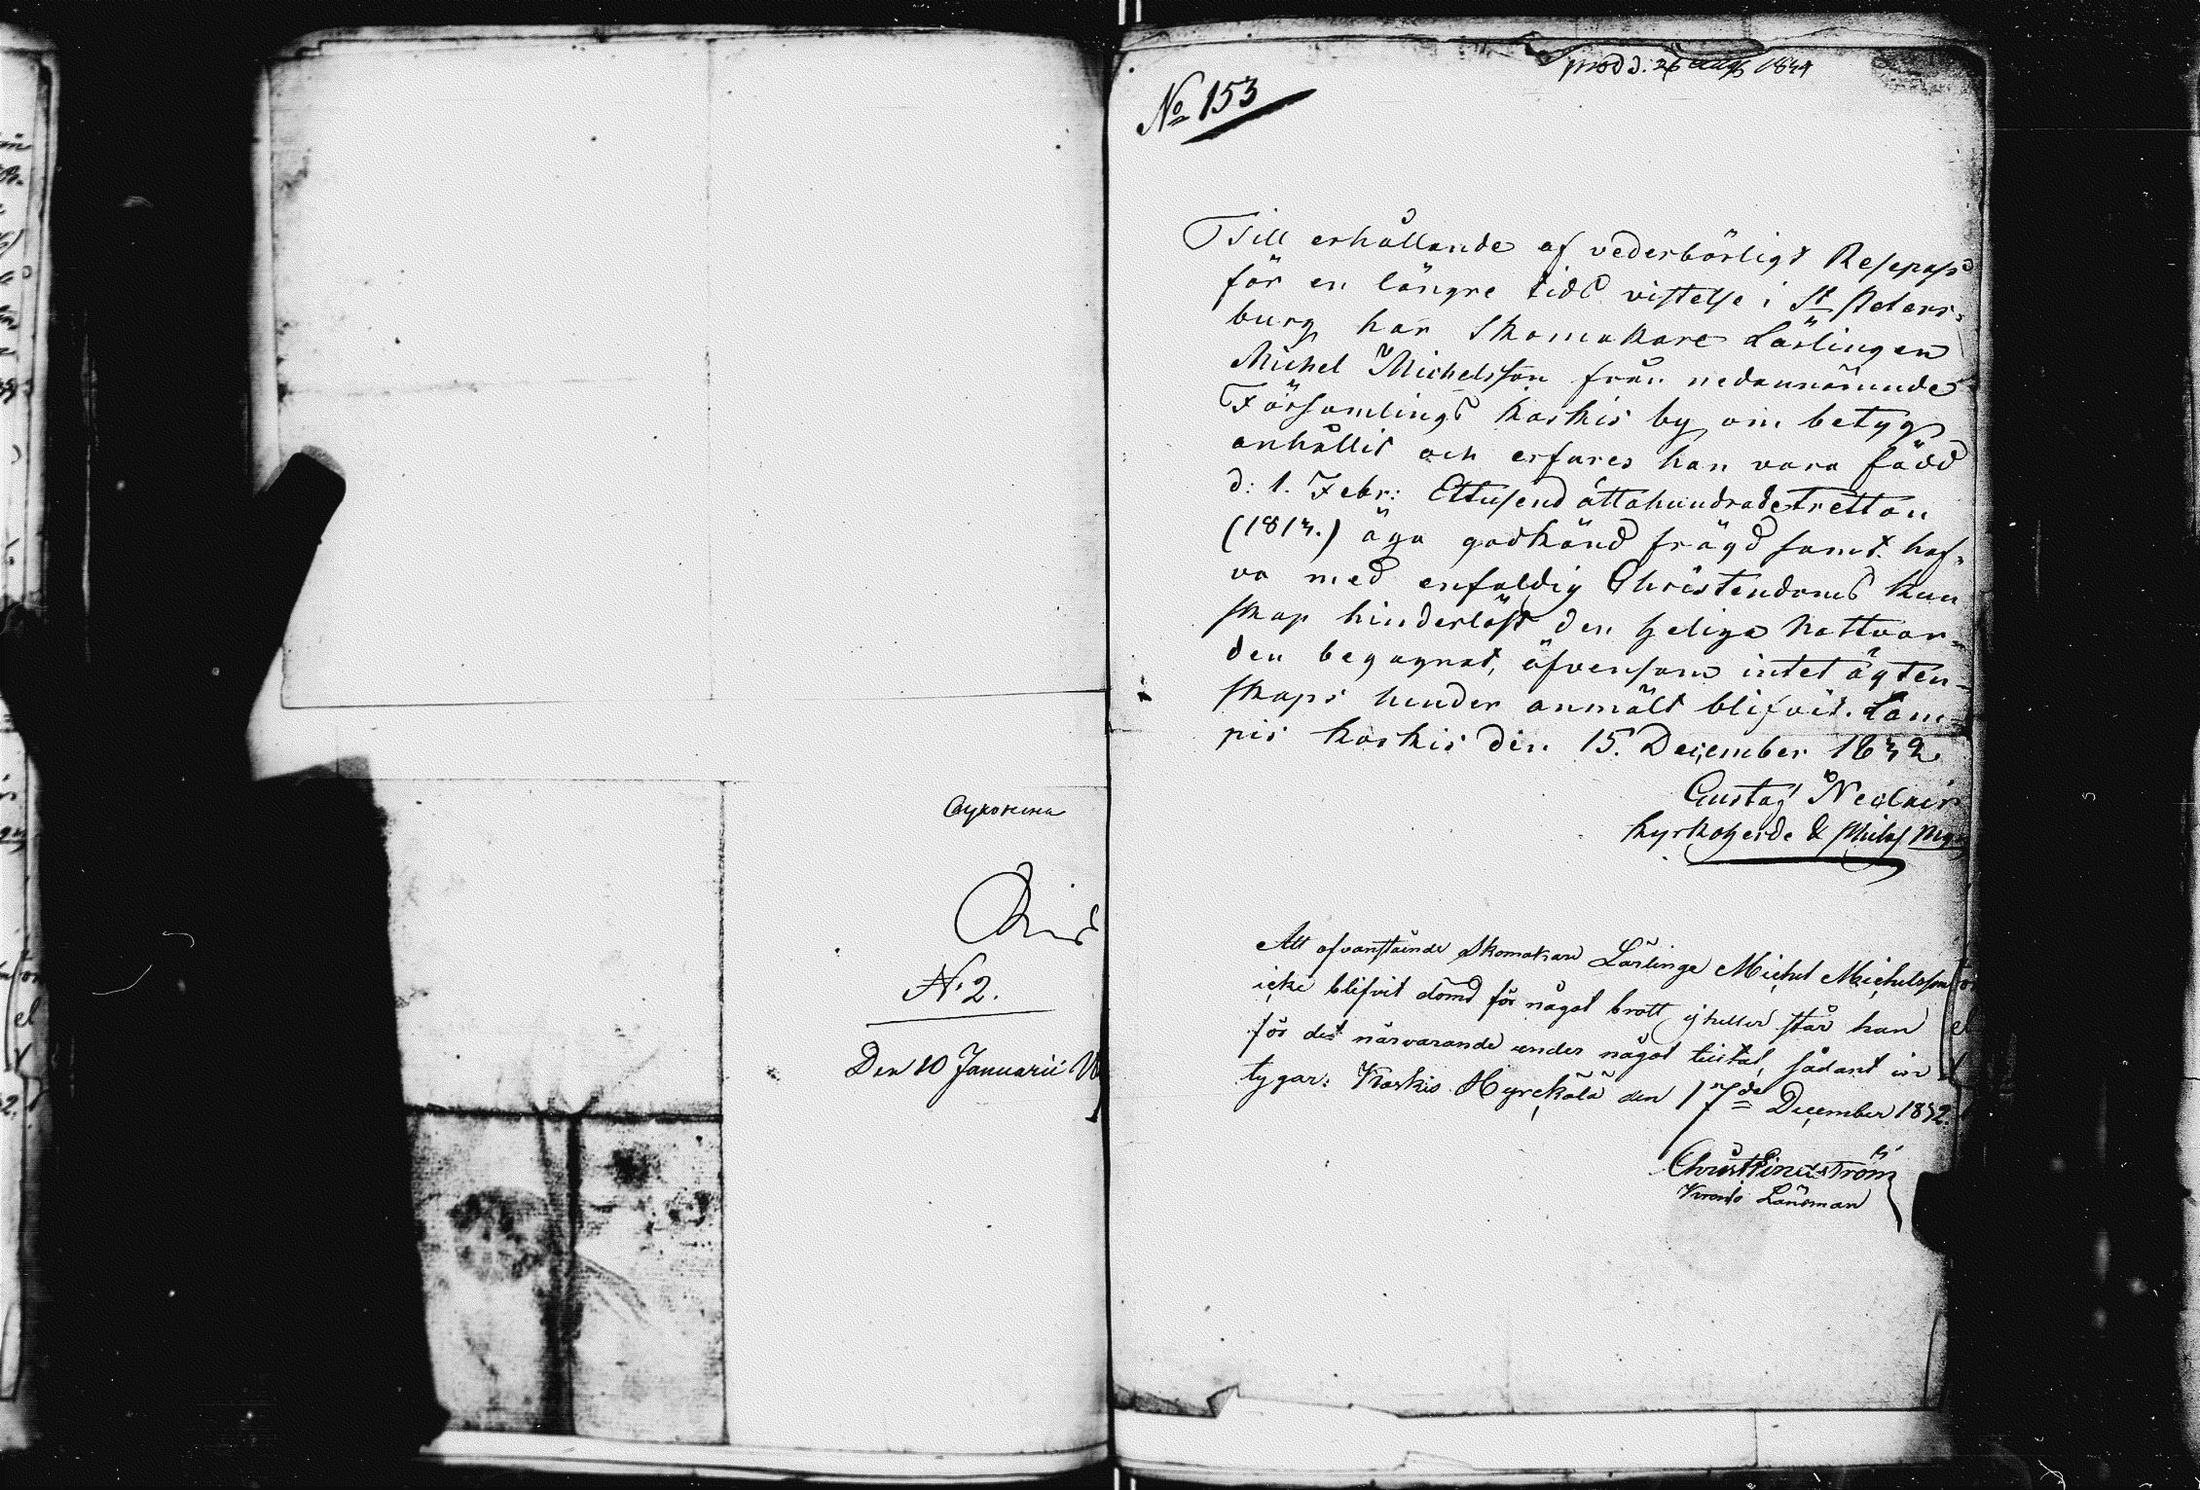 Сукокина
N. 2.
Den 10 Januarii
prod d. 26 Aug 1844
No 153
Till erhållande af vederbörligt Resepass
för en längre tids vistelse i St Peters-
burg har Skomakare Lärlingen
Michel Michelsson från nedannämnde
Församlings Koskis by om betyg
anhållit och erfares han vara född
d: 1. Febr: Ettusend åttahundradetretton
(1813.) äga godkänd frägd samt haf-
va med enfaldig Christendoms kun
skap hinderlöst den heliga nattvar-
den begagnat, äfvensom intet ägten-
skaps hinder anmält blifvit. Lam-
pis Koskis den 15. December 1832
Gustaf
Kyrkoherde &
Att ofvanstående Skomakare Lärlinge Michel Michelsson
icke blifvit dömd för något brott, ej heller står han
för det närvarande under något tiltal, sådant in
tygar: Koskis Hyrckölä den 17de December 1832.
Christ Lindström
Krono Länsman